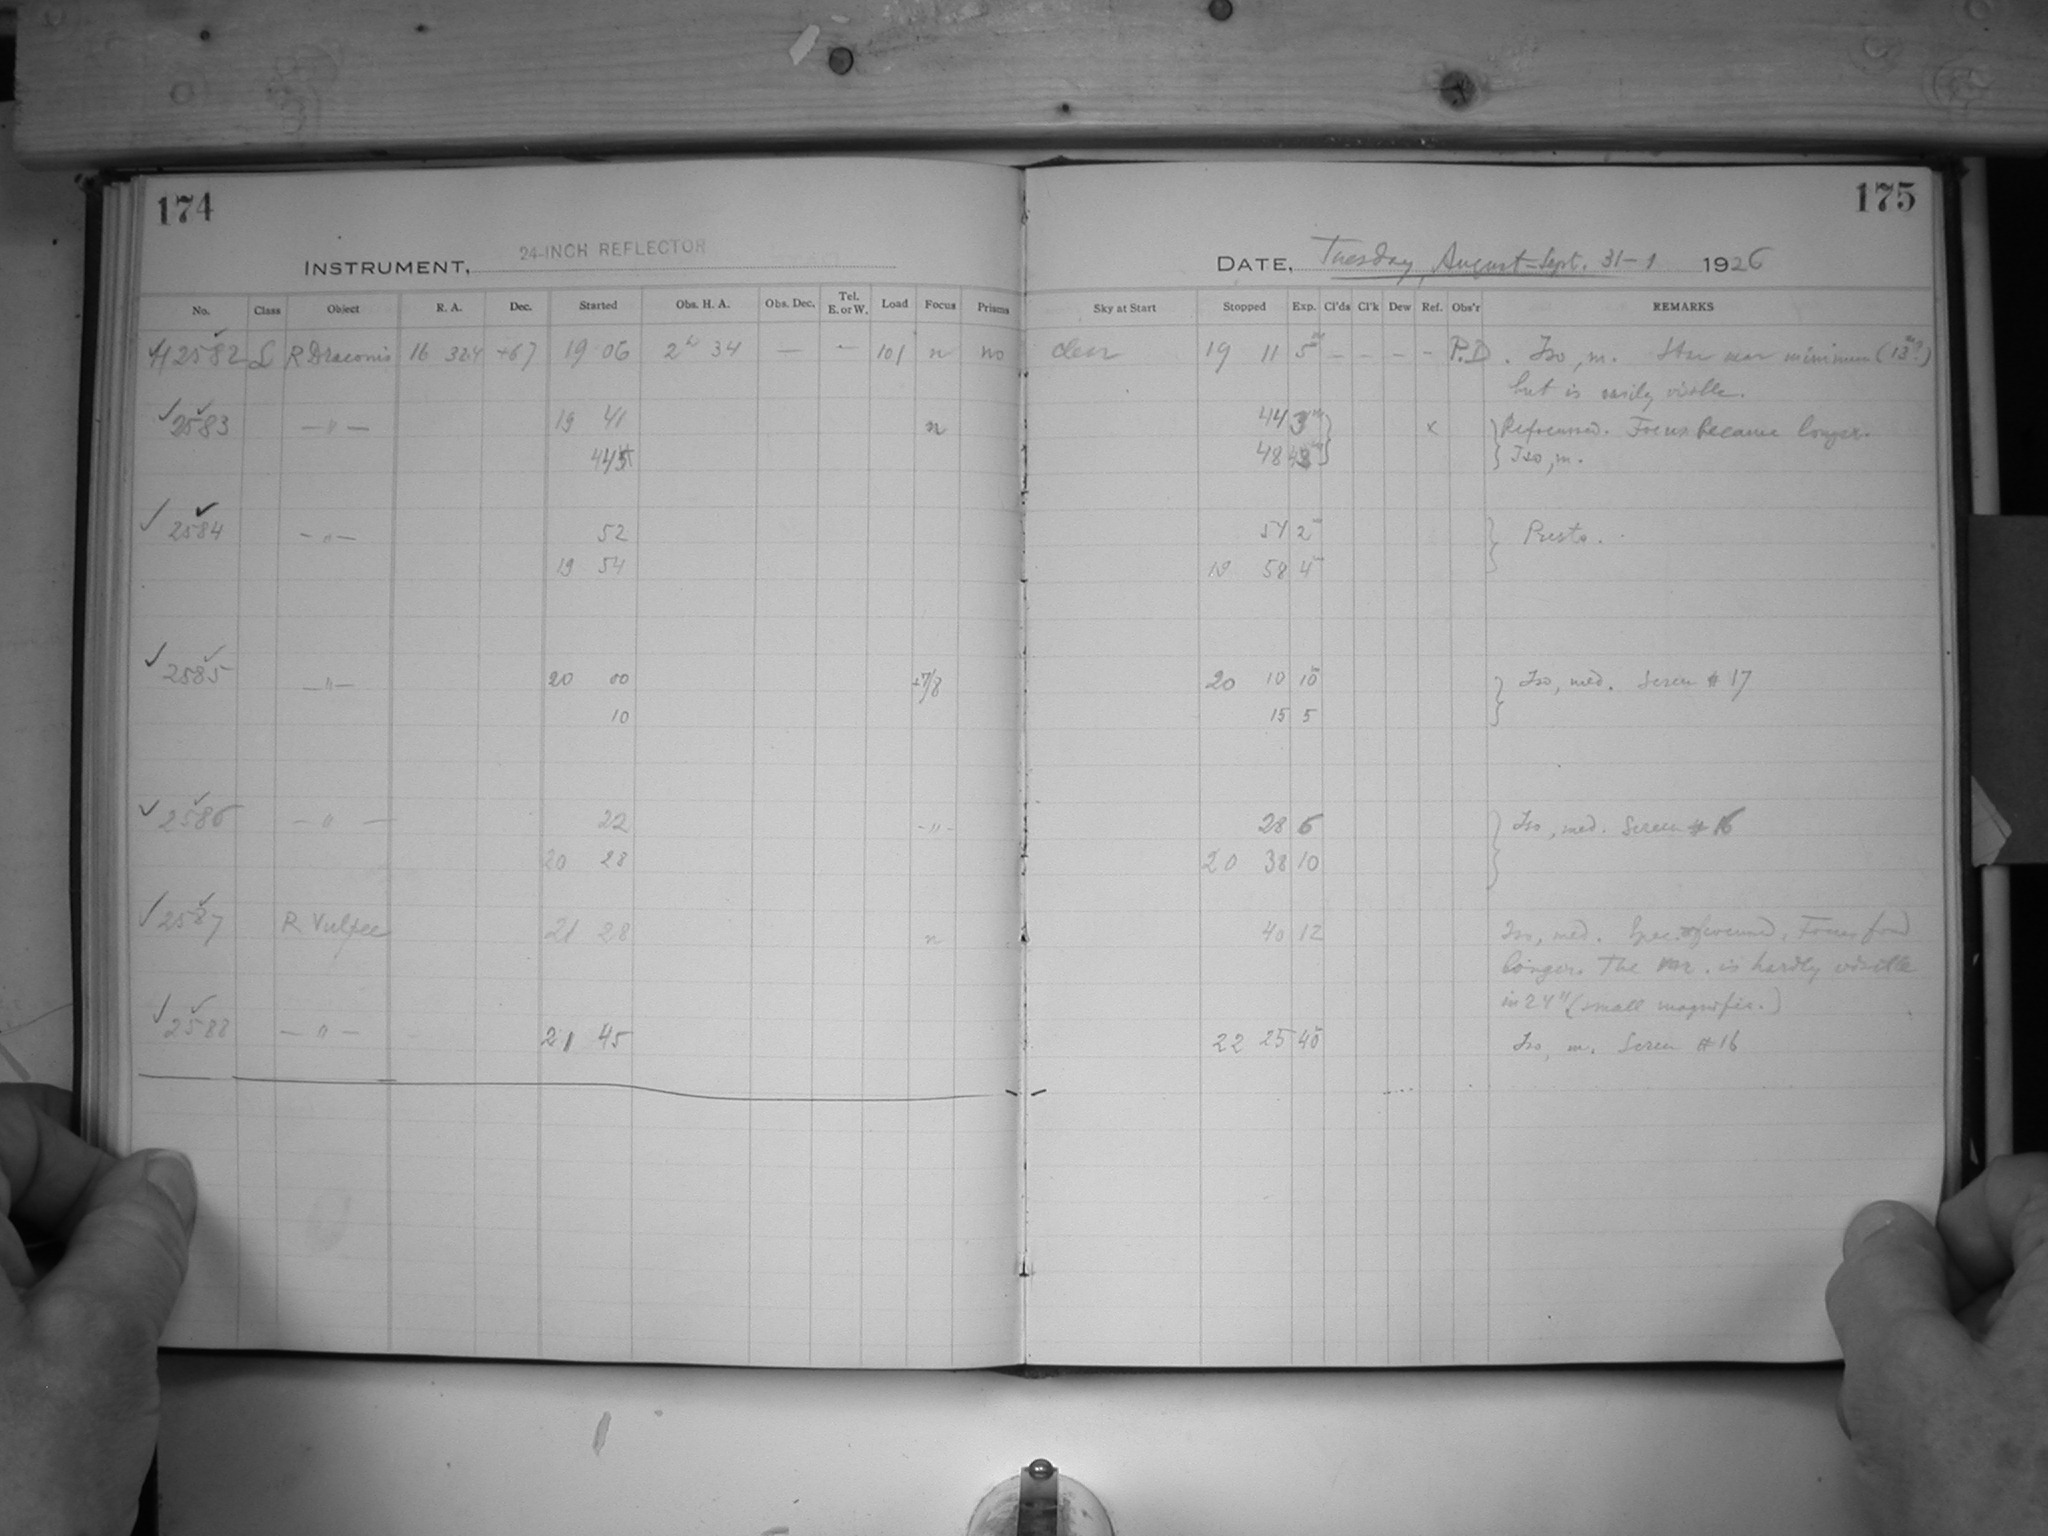 174
175
INSTRUMENT, 24-INCH REFLECTOR
DATE, Tuesday, August-Sept. 31-1 1926
No. Class Object R. A. Dec. Started Obs. H. A. Obs. Dec. Tel. E. or W. Load Focus Prisms Sky at Start Stopped Exp. Cl'ds Cl'k Dew Ref. Obs'r REMARKS
H 2582 L R Draconis 16 32.4 +67 19 06 2h 34 — — 101 n no clear 19 11 5m – – – – P.D. Iso, m. Star near minimum (13m?)
but is easily visible.
2583 — " — 19 41 n 44 3m x Refocussed. Focus became longer.
48 Iso, m.
2584 — " — 52 54 2m Presto.
19 54 19 58 4m
2585 — " — 20 00 +7/8 20 10 10m Iso, med. Screen # 17
10 15 5
2586 — " — 22 - " - 28 6 Iso, med. Screen # 16
20 28 20 38 10
2587 R Vulpec 21 28 n 40 12 Iso, med. refocussed. Focus found
longer. The var. is hardly visible
in 24" (small magnific.)
2588 — " — 21 45 22 25 40m Iso, m. Screen # 16